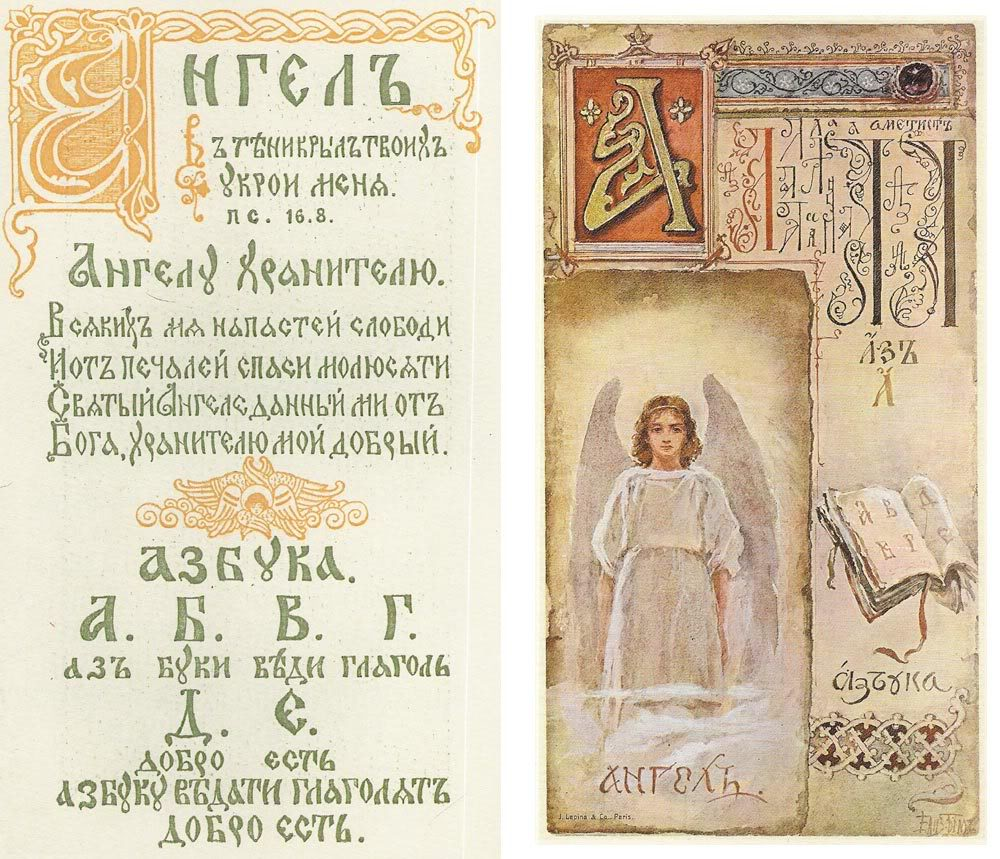 АНГЕЛЪ
Въ тѣни крылъ твоихъ
укрои меня.
пс. 16.8.
Ангелу Хранителю.
Всякихъ мя напастей слободи
И отъ печалей спаси молюся ти
Святый Ангеле данный ми отъ
Бога, хранителю мой добрый.
АЗБУКА.
А. Б. В. Г.
азъ буки вѣди глаголь
Д. Є.
добро есть
азбуку вѣдати глаголятъ
добро есть.
А
аметистъ
АЗЪ
А
А В Д
Б Г Е
азъука
АНГЕЛЪ.
J. Lapina & Co. Paris.